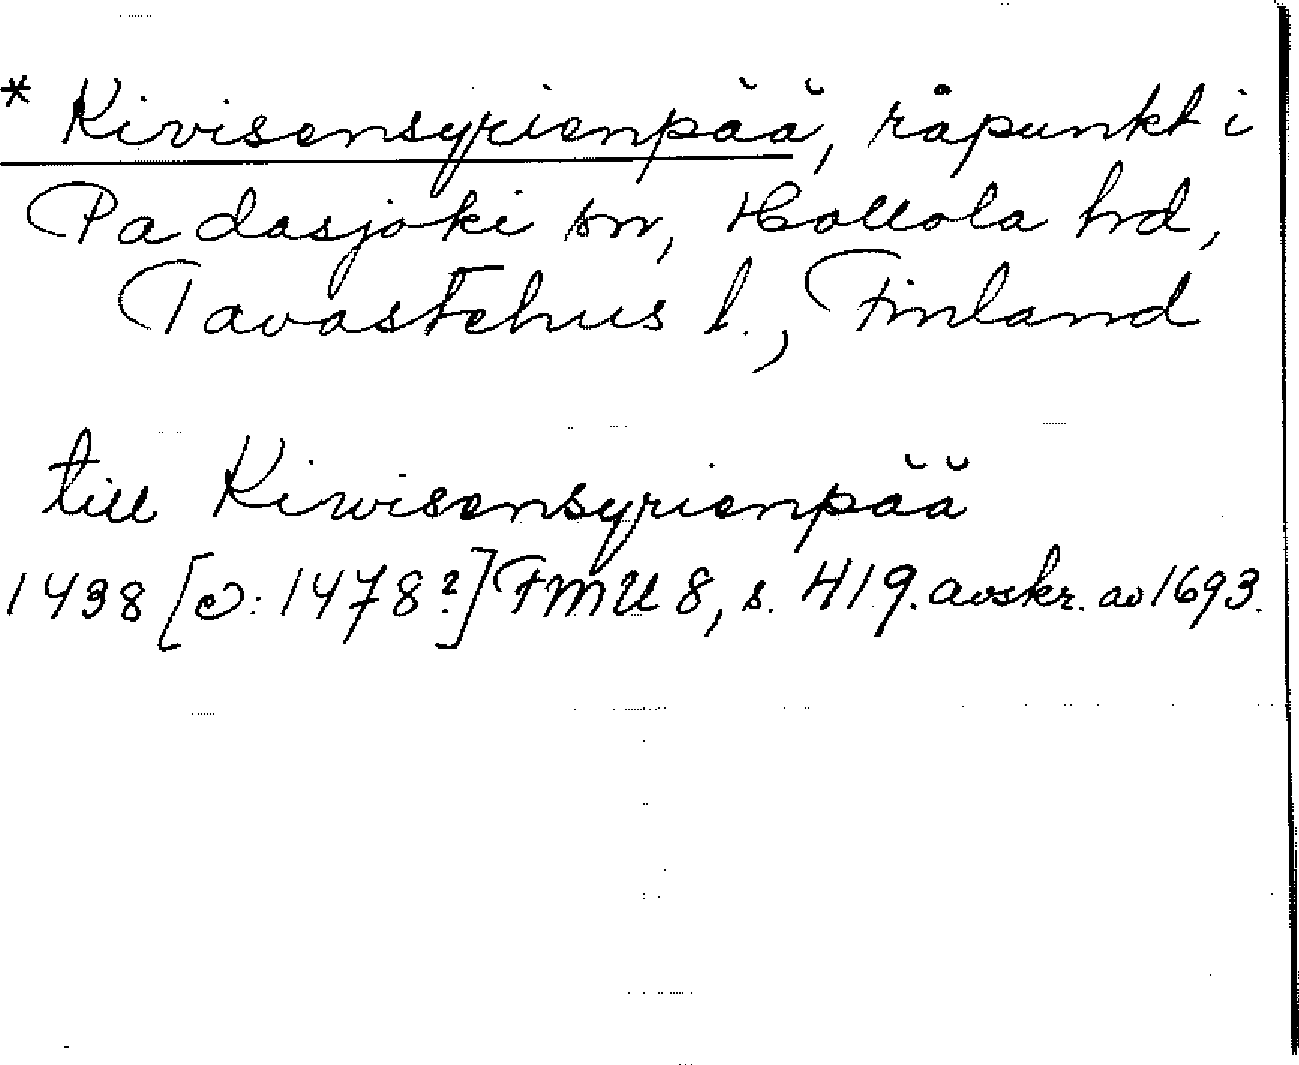 * Kivisensyrienpää, råpunkt i
Padasjoki sn, Hollola hd,
Tavastehus l., Finland
till Kiwisensyrienpää
1438 [ɔ: 1478?] FMU 8, s. 419. avskr. av 1693.